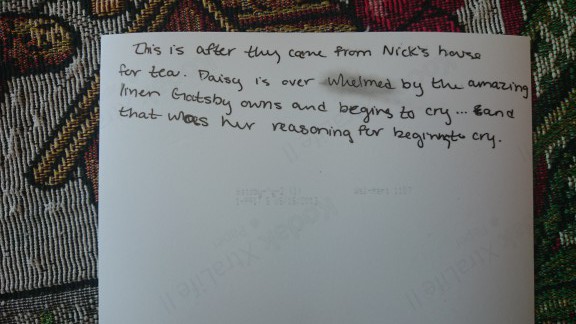 This is after they came from Nick's house
for tea. Daisy is over whelmed by the amazing
linen Gatsby owns and begins to cry... and
that was her reasoning for beginngto cry.
Kodak XtraLife II